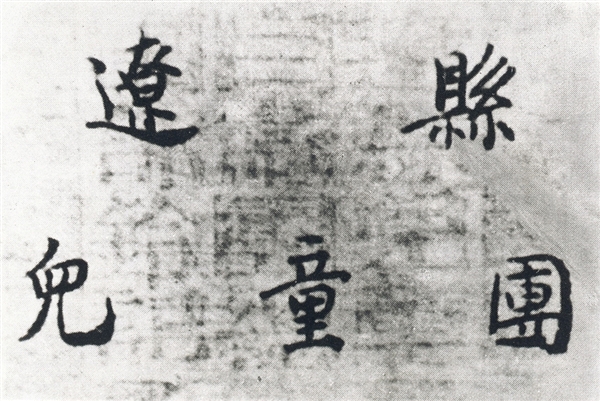 遼縣
兒童團